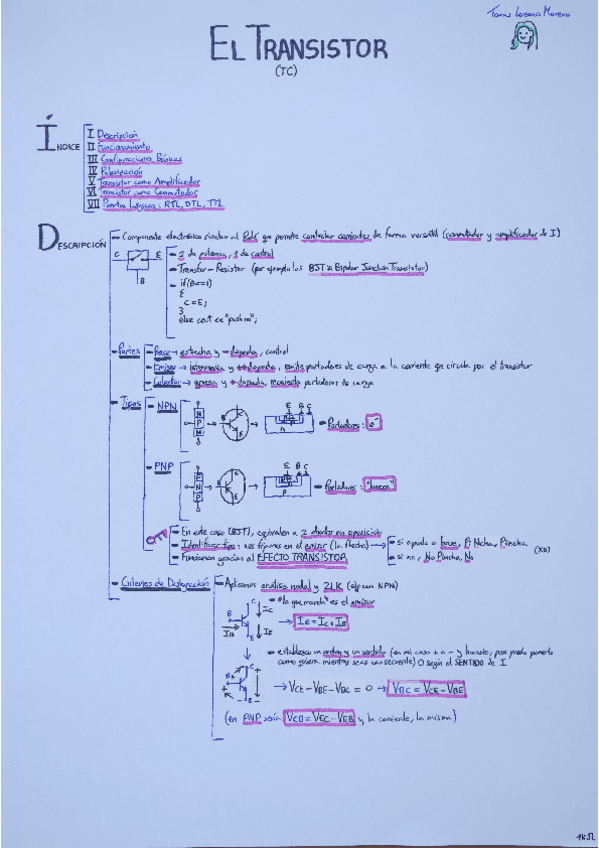 Tomás Lozano Moreno
EL TRANSISTOR
(TC)
ÍNDICE
I Descripción
II Funcionamiento
III Configuraciones Básicas
IV Polarización
V Transistor como Amplificador
VI Transistor como Conmutador
VII Puertas Lógicas: RTL, DTL, TTL
DESCRIPCIÓN
- Componente electrónico similar al Relé que permite controlar corrientes de forma versátil (conmutador y amplificador de I)
C E
B
- 2 de potencia, 1 de control
- Transfer-Resistor (por ejemplo los: BJT = Bipolar Junction Transistor)
- if(B==1)
{
C=E;
}
else cout << "pues no";
- Partes
- Base → estrecha y -dopada, control
- Emisor → intermedia y ++dopada, emite portadores de carga a la corriente que circula por el transistor
- Colector → gruesa y +dopada, portadores de carga
- Tipos
- NPN
N
P
N
B C E
E B C
- Portadores: e⁻
- PNP
P
N
P
B C E
E B C
- Portadores: "huecos"
- En este caso (BJT), equivalen a 2 diodos en oposición
- Identificar tipo: nos fijamos en el emisor (la flecha) →
- si apunta a base, Pi Ncha, Pincha
- si no, No Pincha, No
(XD)
- Funcionan gracias al EFECTO TRANSISTOR
- Criterios de Designación
- Aplicamos análisis nodal y 2LK (ejp con NPN)
"lo que marcha" es el emisor
B C E
IB IC IE
→ IE = IC + IB
- establezco un orden y un sentido (en mi caso + a - y horario, pero puedo ponerlo
como quiera mientras sea consecuente) O según el SENTIDO de I
B C E
→ VCE - VBE - VBC = 0 → VBC = VCE - VBE
(en PNP sería VCB = VEC - VEB y la corriente, la misma)
1KΩ